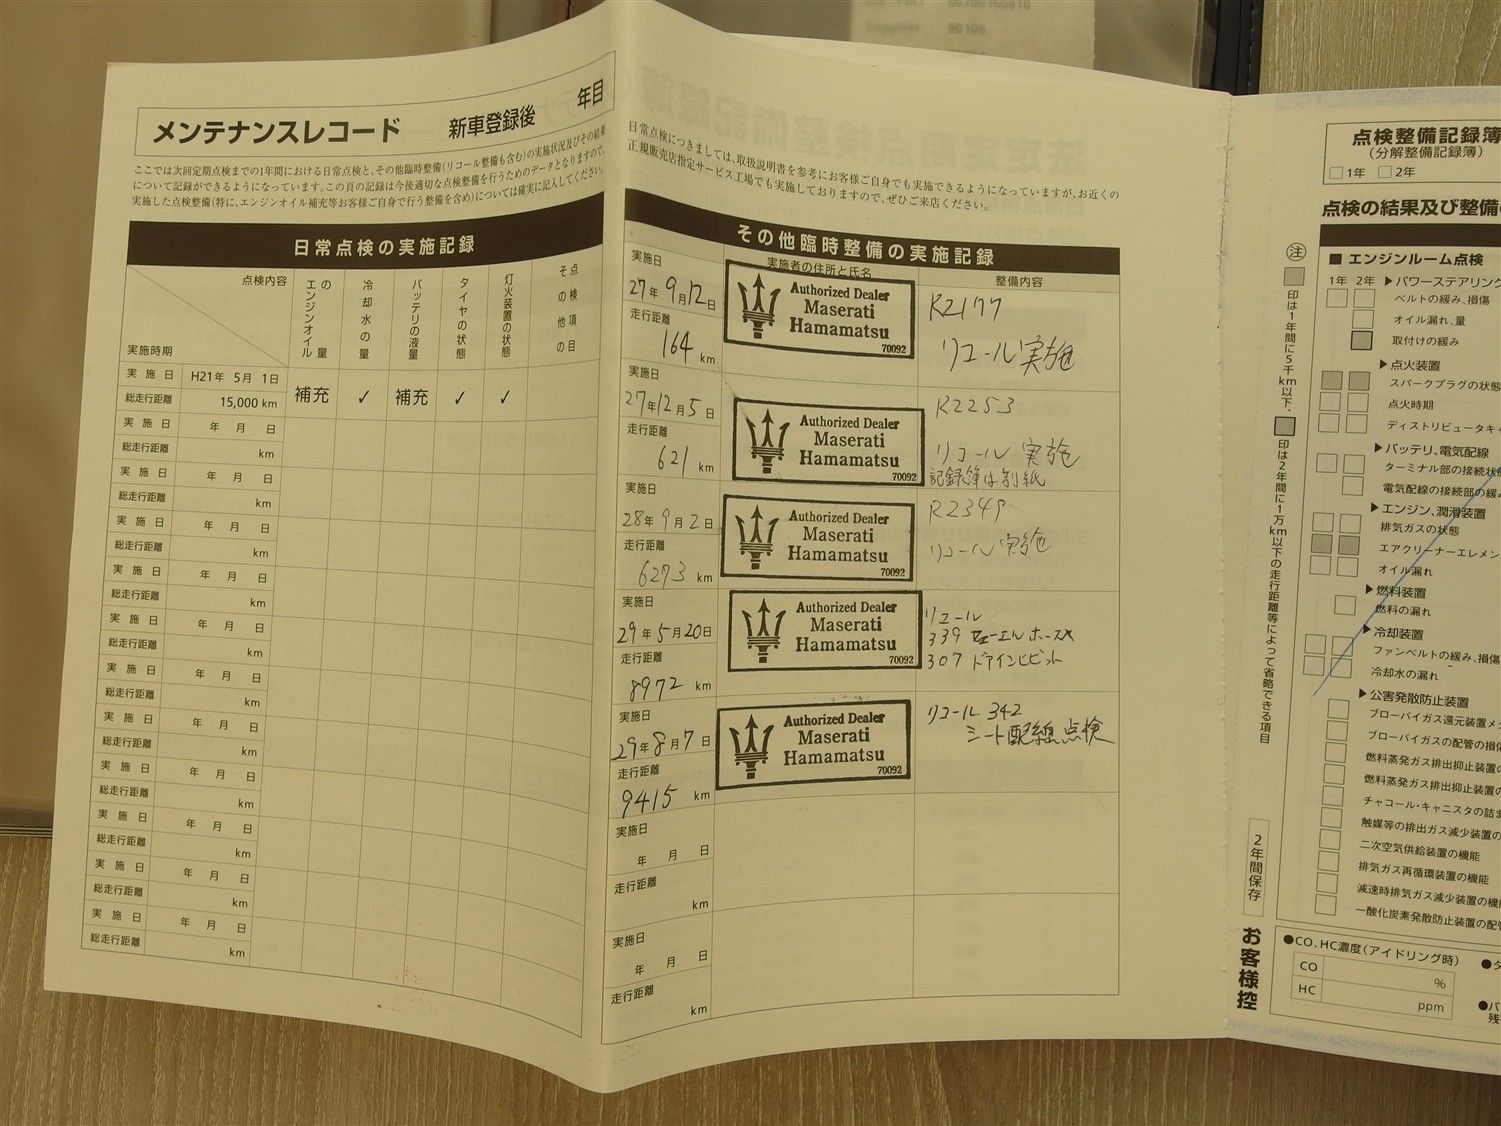 90106
メンテナンスレコード 新車登録後 年目
ここでは次回定期点検までの1年間における日常点検と、その他臨時整備(リコール整備も含む)の実施状況及びその結果
について記録ができるようになっています。この頁の記録は今後適切な点検整備を行うためのデータとなりますので、
実施した点検整備(特に、エンジンオイル補充等お客様ご自身で行う整備を含め)については確実に記入してください。
日常点検の実施記録
点検内容
実施時期
エンジンオイルの量
冷却水の量
バッテリの液量
タイヤの状態
灯火装置の状態
その他の点検項目
実施日 H21年 5月 1日
総走行距離 15,000 km
補充 ✓ 補充 ✓ ✓
実施日 年 月 日
総走行距離 km
実施日 年 月 日
総走行距離 km
実施日 年 月 日
総走行距離 km
実施日 年 月 日
総走行距離 km
実施日 年 月 日
総走行距離 km
実施日 年 月 日
総走行距離 km
実施日 年 月 日
総走行距離 km
実施日 年 月 日
総走行距離 km
実施日 年 月 日
総走行距離 km
実施日 年 月 日
総走行距離 km
実施日 年 月 日
総走行距離 km
日常点検につきましては、取扱説明書を参考にお客様ご自身でも実施できるようになっていますが、お近くの
正規販売店指定サービス工場でも実施しておりますので、ぜひご来店ください。
その他臨時整備の実施記録
実施者の住所と氏名
整備内容
実施日
27年 9月12日
走行距離
164 km
Authorized Dealer
Maserati
Hamamatsu
70092
R2177
リコール実施
実施日
27年12月5日
走行距離
621 km
Authorized Dealer
Maserati
Hamamatsu
70092
R2253
リコール 実施
記録簿は別紙
実施日
28年9月2日
走行距離
6273 km
Authorized Dealer
Maserati
Hamamatsu
70092
R2349
リコール実施
実施日
29年5月20日
走行距離
8972 km
Authorized Dealer
Maserati
Hamamatsu
70092
リコール
339 ホース
307
実施日
29年8月7日
走行距離
9415 km
Authorized Dealer
Maserati
Hamamatsu
70092
リコール 342
シート配線点検
実施日
年 月 日
走行距離
km
実施日
年 月 日
走行距離
km
点検整備記録簿
(分解整備記録簿)
1年 2年
点検の結果及び整備
注
印は1年間に5千km以下、
印は2年間に1万km以下の走行距離等によって省略できる項目
2年間保存
お客様控
■ エンジンルーム点検
1年 2年 ▶パワーステアリング
ベルトの緩み、損傷
オイル漏れ、量
取付けの緩み
▶点火装置
スパークプラグの状態
点火時期
ディストリビュータキャ
▶バッテリ、電気配線
ターミナル部の接続状
電気配線の接続部の緩
▶エンジン、潤滑装置
排気ガスの状態
エアクリーナーエレメン
オイル漏れ
▶燃料装置
燃料の漏れ
▶冷却装置
ファンベルトの緩み、損傷
冷却水の漏れ
▶公害発散防止装置
ブローバイガス還元装置メ
ブローバイガスの配管の損
燃料蒸発ガス排出抑止装置の
燃料蒸発ガス排出抑止装置の
チャコール・キャニスタの詰ま
触媒等の排出ガス減少装置の
二次空気供給装置の機能
排気ガス再循環装置の機能
減速時排気ガス減少装置の機
一酸化炭素発散防止装置の配
●CO、HC濃度(アイドリング時)
CO %
HC ppm